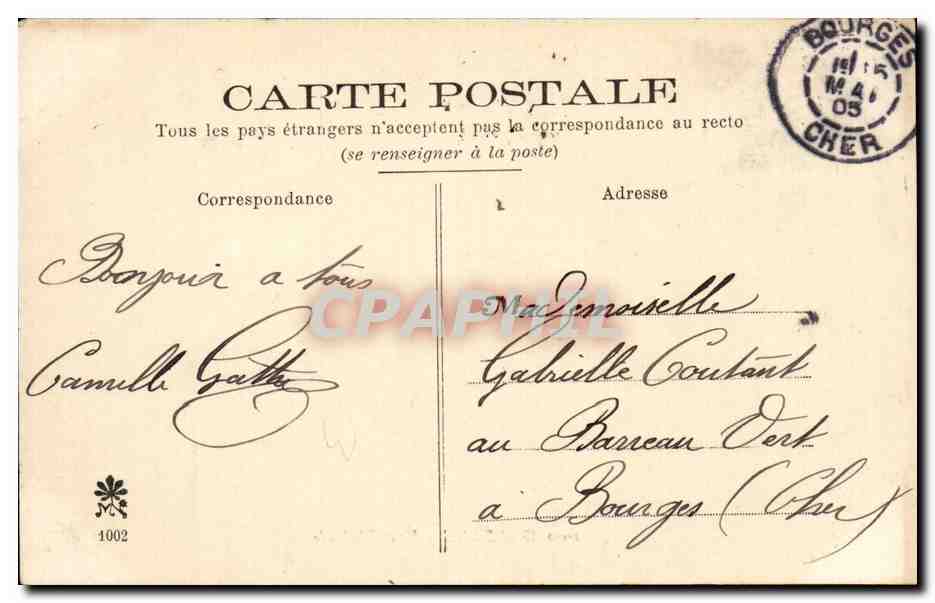 CARTE POSTALE
Tous les pays étrangers n'acceptent pas la correspondance au recto
(se renseigner à la poste)
BOURGES
MAI
05
CHER
Correspondance
Bonjour a tous
Camille
1002
Adresse
Mademoiselle
Gabrielle Coutant
au Barreau Vert
à Bourges (Cher)
CPAPHIL